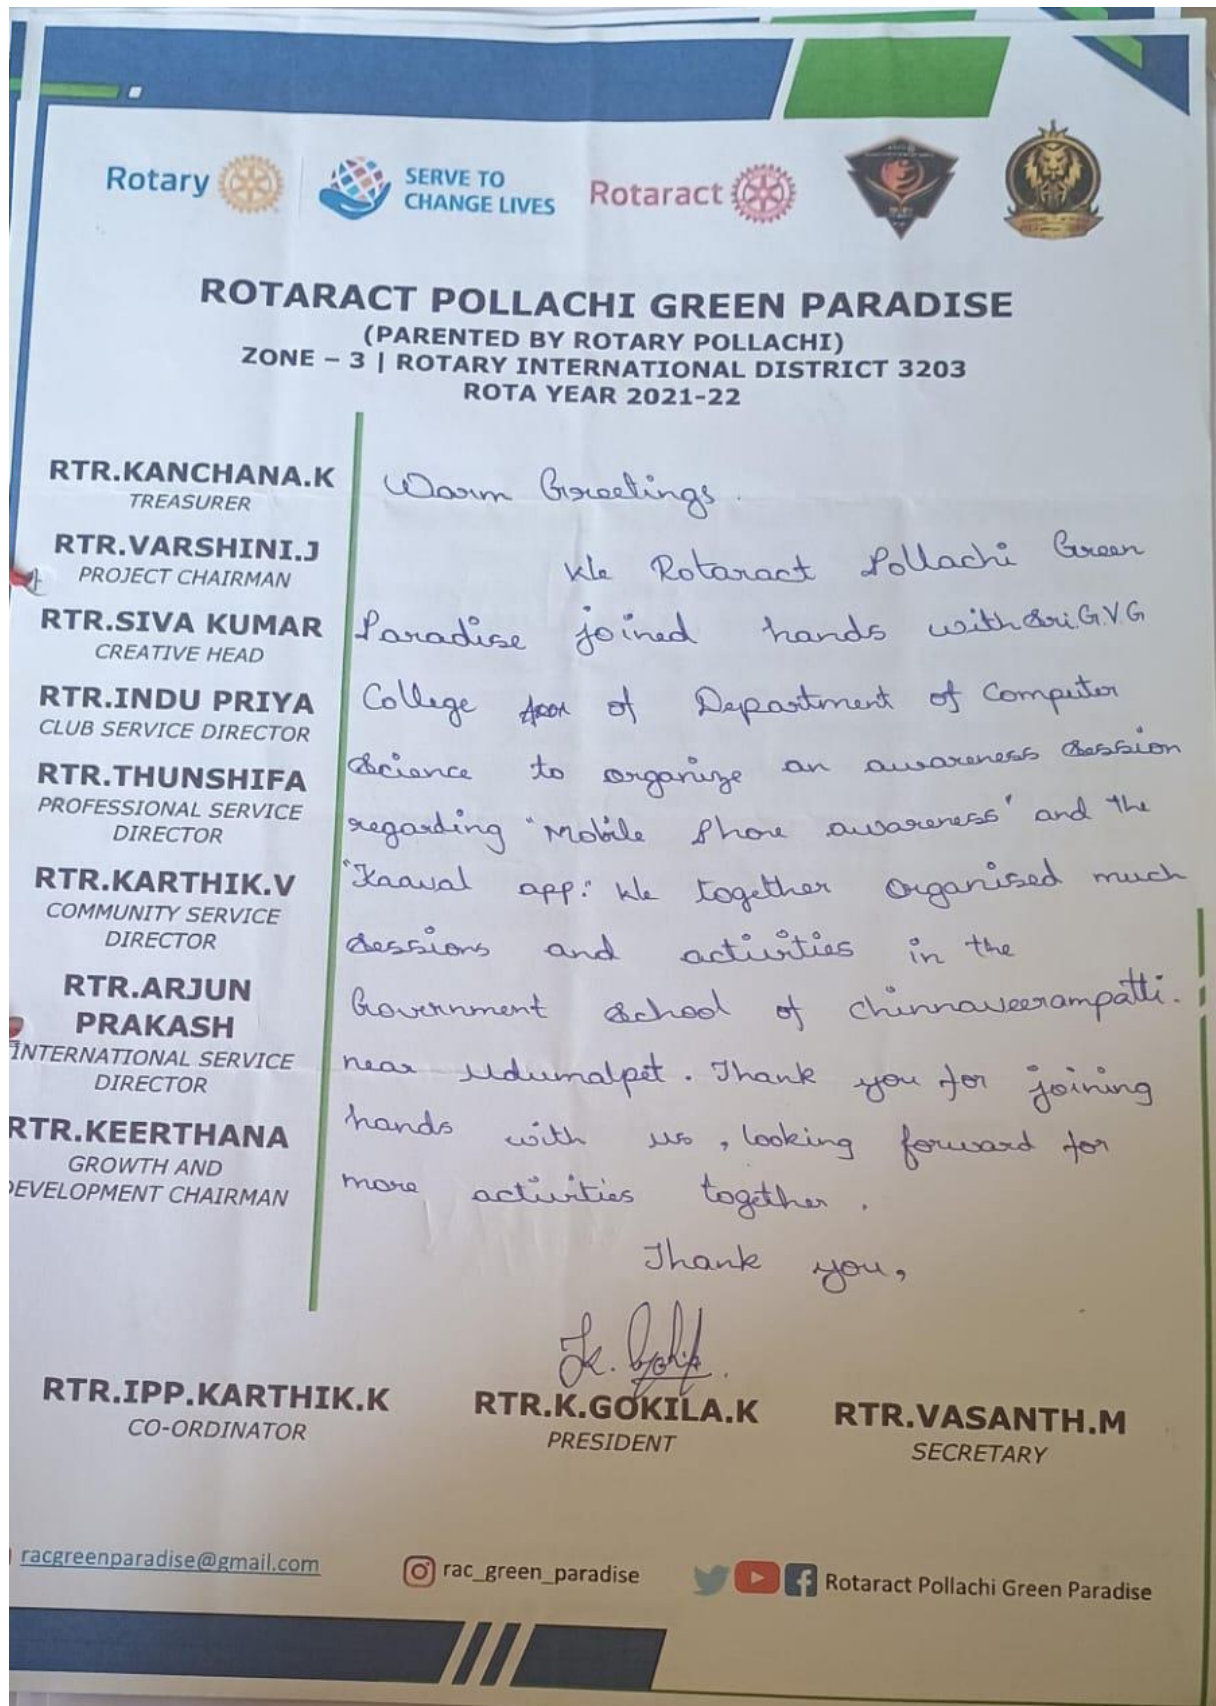 Rotary
SERVE TO
CHANGE LIVES
Rotaract
ROTARACT POLLACHI GREEN PARADISE
(PARENTED BY ROTARY POLLACHI)
ZONE – 3 | ROTARY INTERNATIONAL DISTRICT 3203
ROTA YEAR 2021-22
RTR.KANCHANA.K
TREASURER
RTR.VARSHINI.J
PROJECT CHAIRMAN
RTR.SIVA KUMAR
CREATIVE HEAD
RTR.INDU PRIYA
CLUB SERVICE DIRECTOR
RTR.THUNSHIFA
PROFESSIONAL SERVICE
DIRECTOR
RTR.KARTHIK.V
COMMUNITY SERVICE
DIRECTOR
RTR.ARJUN
PRAKASH
INTERNATIONAL SERVICE
DIRECTOR
RTR.KEERTHANA
GROWTH AND
DEVELOPMENT CHAIRMAN
Warm Greetings.
We Rotaract Pollachi Green
Paradise joined hands with Sri.G.V.G
College of Department of Computer
Science to organize an awareness session
regarding "Mobile Phone awareness" and the
"Kaaval app." We together organised much
sessions and activities in the
Government School of Chinnaveerampatti.
near Udumalpet. Thank you for joining
hands with us, looking forward for
more activities together.
Thank you,
RTR.IPP.KARTHIK.K
CO-ORDINATOR
RTR.K.GOKILA.K
PRESIDENT
RTR.VASANTH.M
SECRETARY
racgreenparadise@gmail.com
rac_green_paradise
Rotaract Pollachi Green Paradise